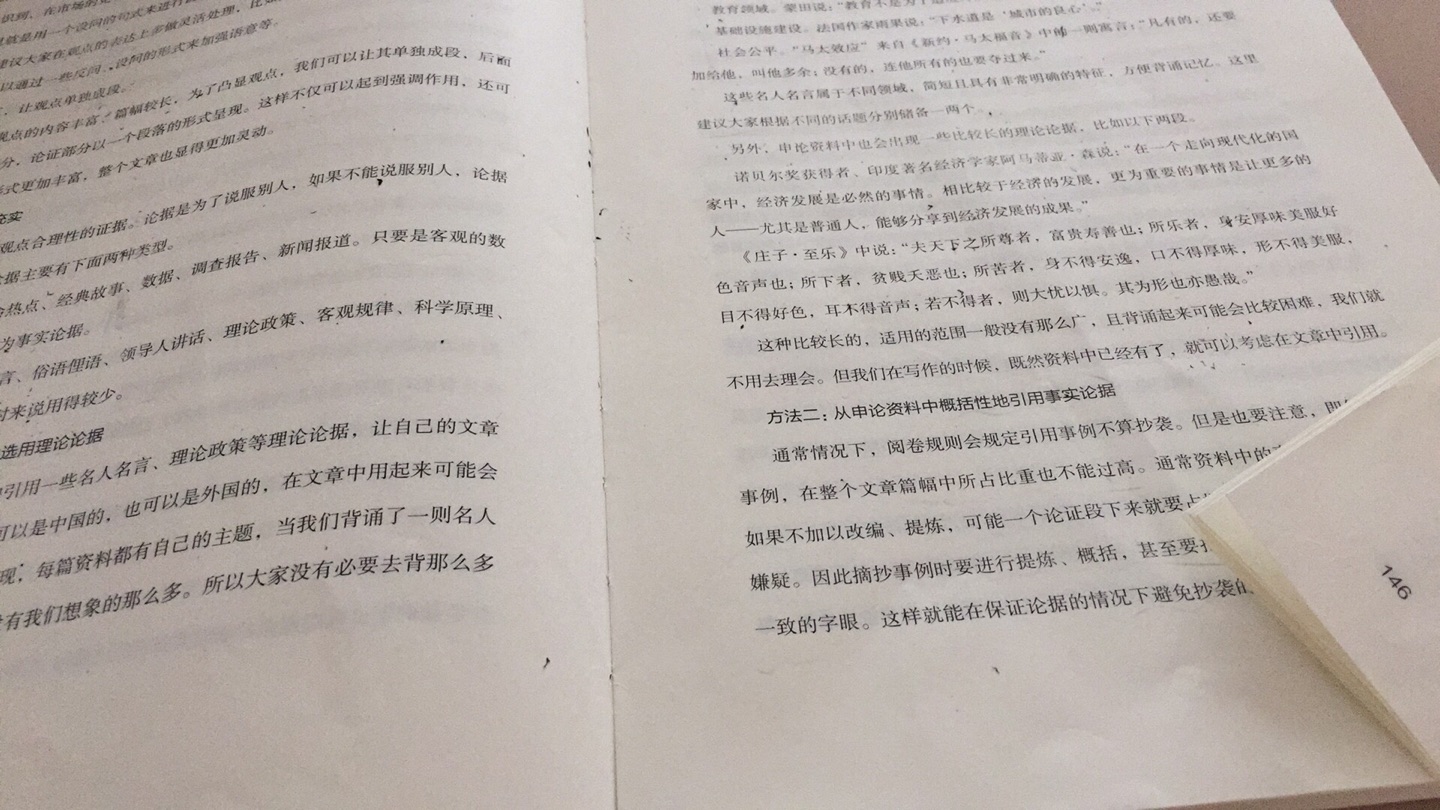 识到，在市场的
就是用一个设问的句式来进行
建议大家在观点的表达上多做灵活处理，比
以通过一些反问、设问的形式来加强语意等。
，让观点单独成段。
观点的内容丰富、篇幅较长，为了凸显观点，我们可以让其单独成段，后面
分，论证部分以一个段落的形式呈现。这样不仅可以起到强调作用，还可
形式更加丰富，整个文章也显得更加灵动。
充实
观点合理性的证据。论据是为了说服别人，如果不能说服别人，论据
论据主要有下面两种类型。
会热点、经典故事、数据、调查报告、新闻报道。只要是客观的数
为事实论据。
言、俗语俚语、领导人讲话、理论政策、客观规律、科学原理、
对来说用得较少。
选用理论论据
引用一些名人名言、理论政策等理论论据，让自己的文章
可以是中国的，也可以是外国的，在文章中用起来可能会
现，每篇资料都有自己的主题，当我们背诵了一则名人
有我们想象的那么多。所以大家没有必要去背那么多
教育领域。蒙田说：“教育不是为了
基础设施建设。法国作家雨果说：“下水道是‘城市的良心’。”
社会公平。“马太效应”来自《新约·马太福音》中的一则寓言：“凡有的，还要
加给他，叫他多余；没有的，连他所有的也要夺过来。”
这些名人名言属于不同领域，简短且具有非常明确的特征，方便背诵记忆。这里
建议大家根据不同的话题分别储备一两个。
另外，申论资料中也会出现一些比较长的理论论据，比如以下两段。
诺贝尔奖获得者、印度著名经济学家阿马蒂亚·森说：“在一个走向现代化的国
家中，经济发展是必然的事情。相比较于经济的发展，更为重要的事情是让更多的
人——尤其是普通人，能够分享到经济发展的成果。”
《庄子·至乐》中说：“夫天下之所尊者，富贵寿善也；所乐者，身安厚味美服好
色音声也；所下者，贫贱夭恶也；所苦者，身不得安逸，口不得厚味，形不得美服，
目不得好色，耳不得音声；若不得者，则大忧以惧。其为形也亦愚哉。”
这种比较长的，适用的范围一般没有那么广，且背诵起来可能会比较困难，我们就
不用去理会。但我们在写作的时候，既然资料中已经有了，就可以考虑在文章中引用。
方法二：从申论资料中概括性地引用事实论据
通常情况下，阅卷规则会规定引用事例不算抄袭。但是也要注意，即
事例，在整个文章篇幅中所占比重也不能过高。通常资料中的
如果不加以改编、提炼，可能一个论证段下来就要占
嫌疑。因此摘抄事例时要进行提炼、概括，甚至要
一致的字眼。这样就能在保证论据的情况下避免抄袭的
146